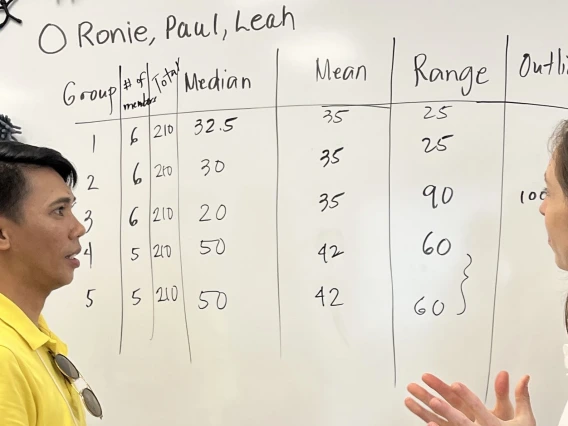 Ronie, Paul, Leah
Group # of members Total Median Mean Range Outli
1 6 210 32.5 35 25
2 6 210 30 35 25
3 6 210 20 35 90 100
4 5 210 50 42 60
5 5 210 50 42 60